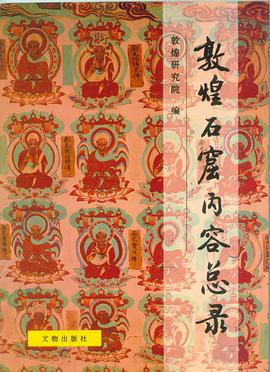 敦煌石窟内容总录
敦煌研究院 编
文物出版社